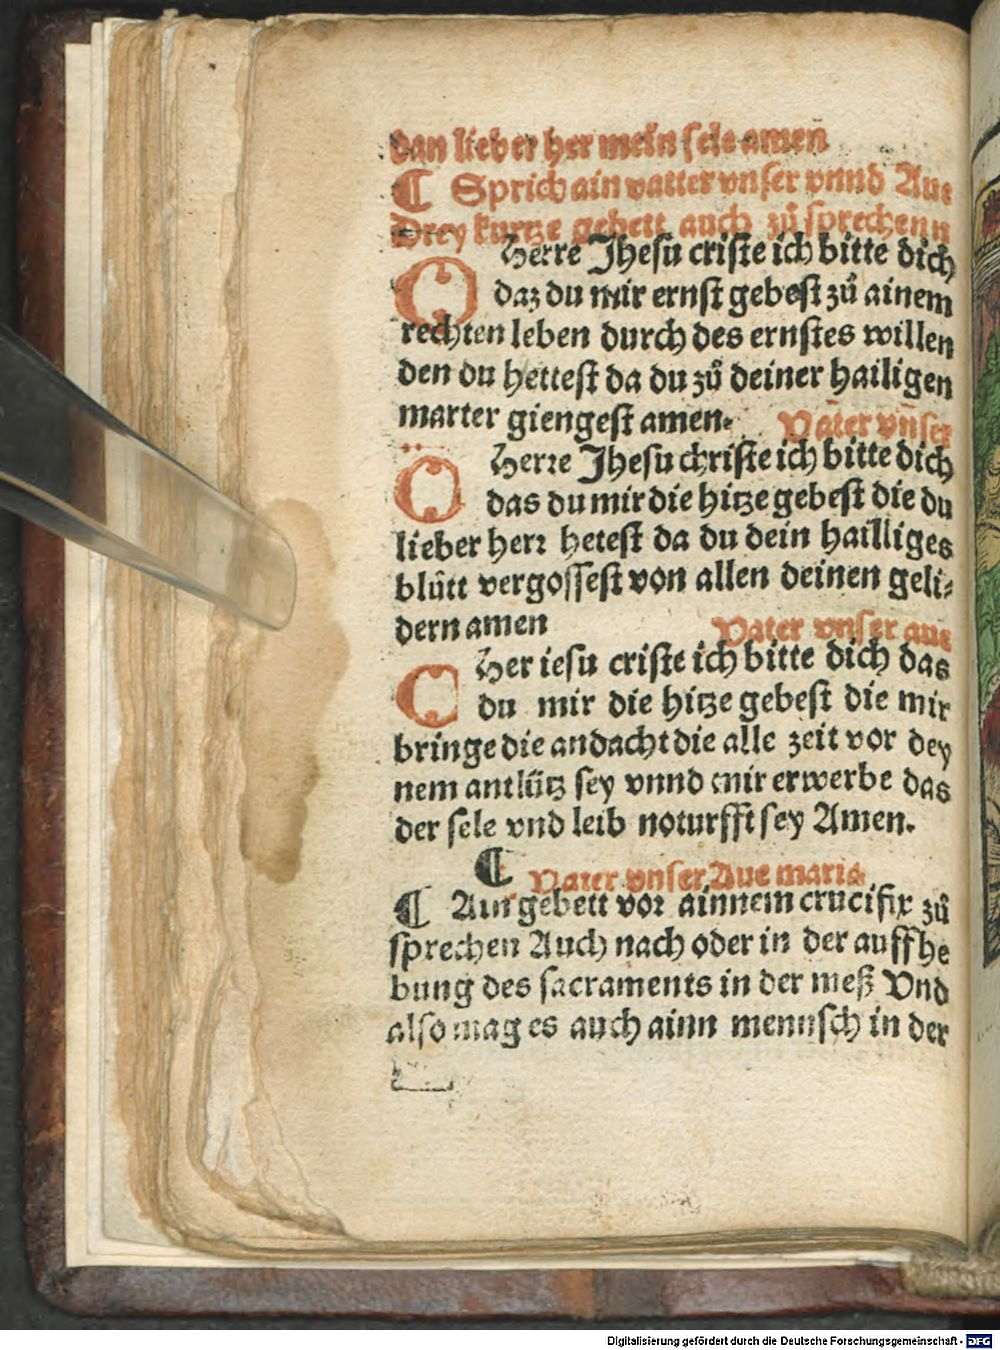 dan lieber her mein sele amen
¶ Sprich ain vatter vnser vnnd Aue
Drey kurtze gebett auch zů sprechenn
O Herre Jhesu criste ich bitte dich
daz du mir ernst gebest zů ainem
rechten leben durch des ernstes willen
den du hettest da du zů deiner hailigen
marter giengest amen. Vater vn̄ser
O Herre Jhesu christe ich bitte dich
das du mir die hitze gebest die du
lieber herr hetest da du dein hailliges
blůtt vergossest von allen deinen geli⸗
dern amen Vater vnser aue
O Her iesu criste ich bitte dich das
du mir die hitze gebest die mir
bringe die andacht die alle zeit vor dey
nem antlütz sey vnnd mir erwerbe das
der sele vnd leib noturfft sey Amen.
¶ Vater vnser Aue maria
¶ Ain gebett vor ainnem crucifix zů
sprechen Auch nach oder in der auffhe
bung des sacraments in der meß Vnd
also mag es auch ainn mennsch in der
Digitalisierung gefördert durch die Deutsche Forschungsgemeinschaft - DFG